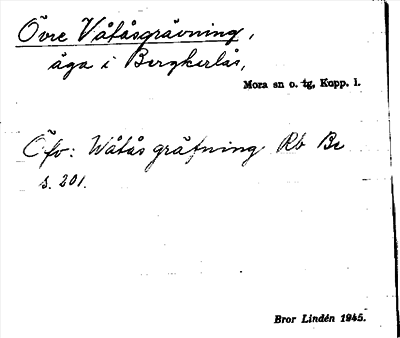 Övre Våtåsgrävning,
äga i Bergkarlås,
Mora sn o. tg, Kopp. l.
Öfv: Wåtås gräfning Rb Be
s. 201.
Bror Lindén 1945.